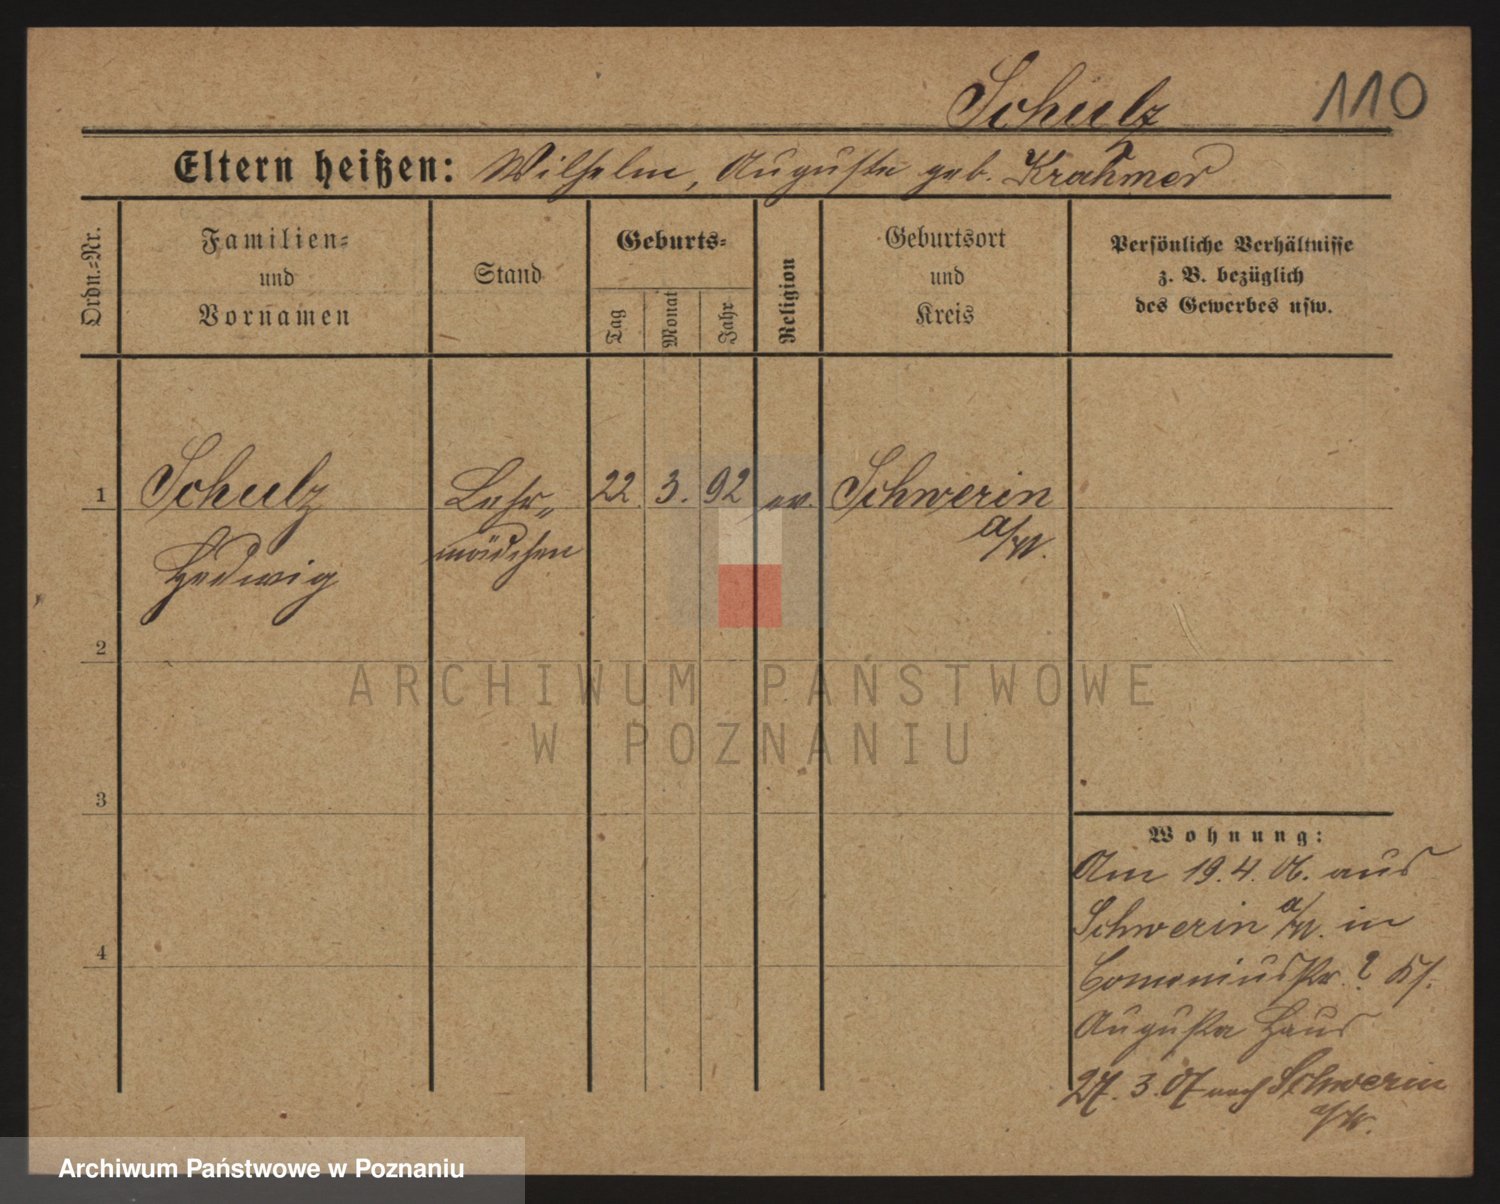 Schulz 110
Eltern heißen: Wilhelm, Auguste geb. Krahmer
Ordn.-Nr.
Familien-
und
Vornamen
Stand
Geburts-
Tag
Monat
Jahr
Religion
Geburtsort
und
Kreis
Persönliche Verhältnisse
z. B. bezüglich
des Gewerbes usw.
1 Schulz Lehr- 22. 3. 92 ev. Schwerin
Hedwig mädchen a/W.
2
3
4
Wohnung:
Am 19.4.06. aus
Schwerin a/W. in
Comeniusstr. 2
Augusta Haus
27.3.07 nach Schwerin
a/W.
ARCHIWUM PAŃSTWOWE
W POZNANIU
Archiwum Państwowe w Poznaniu